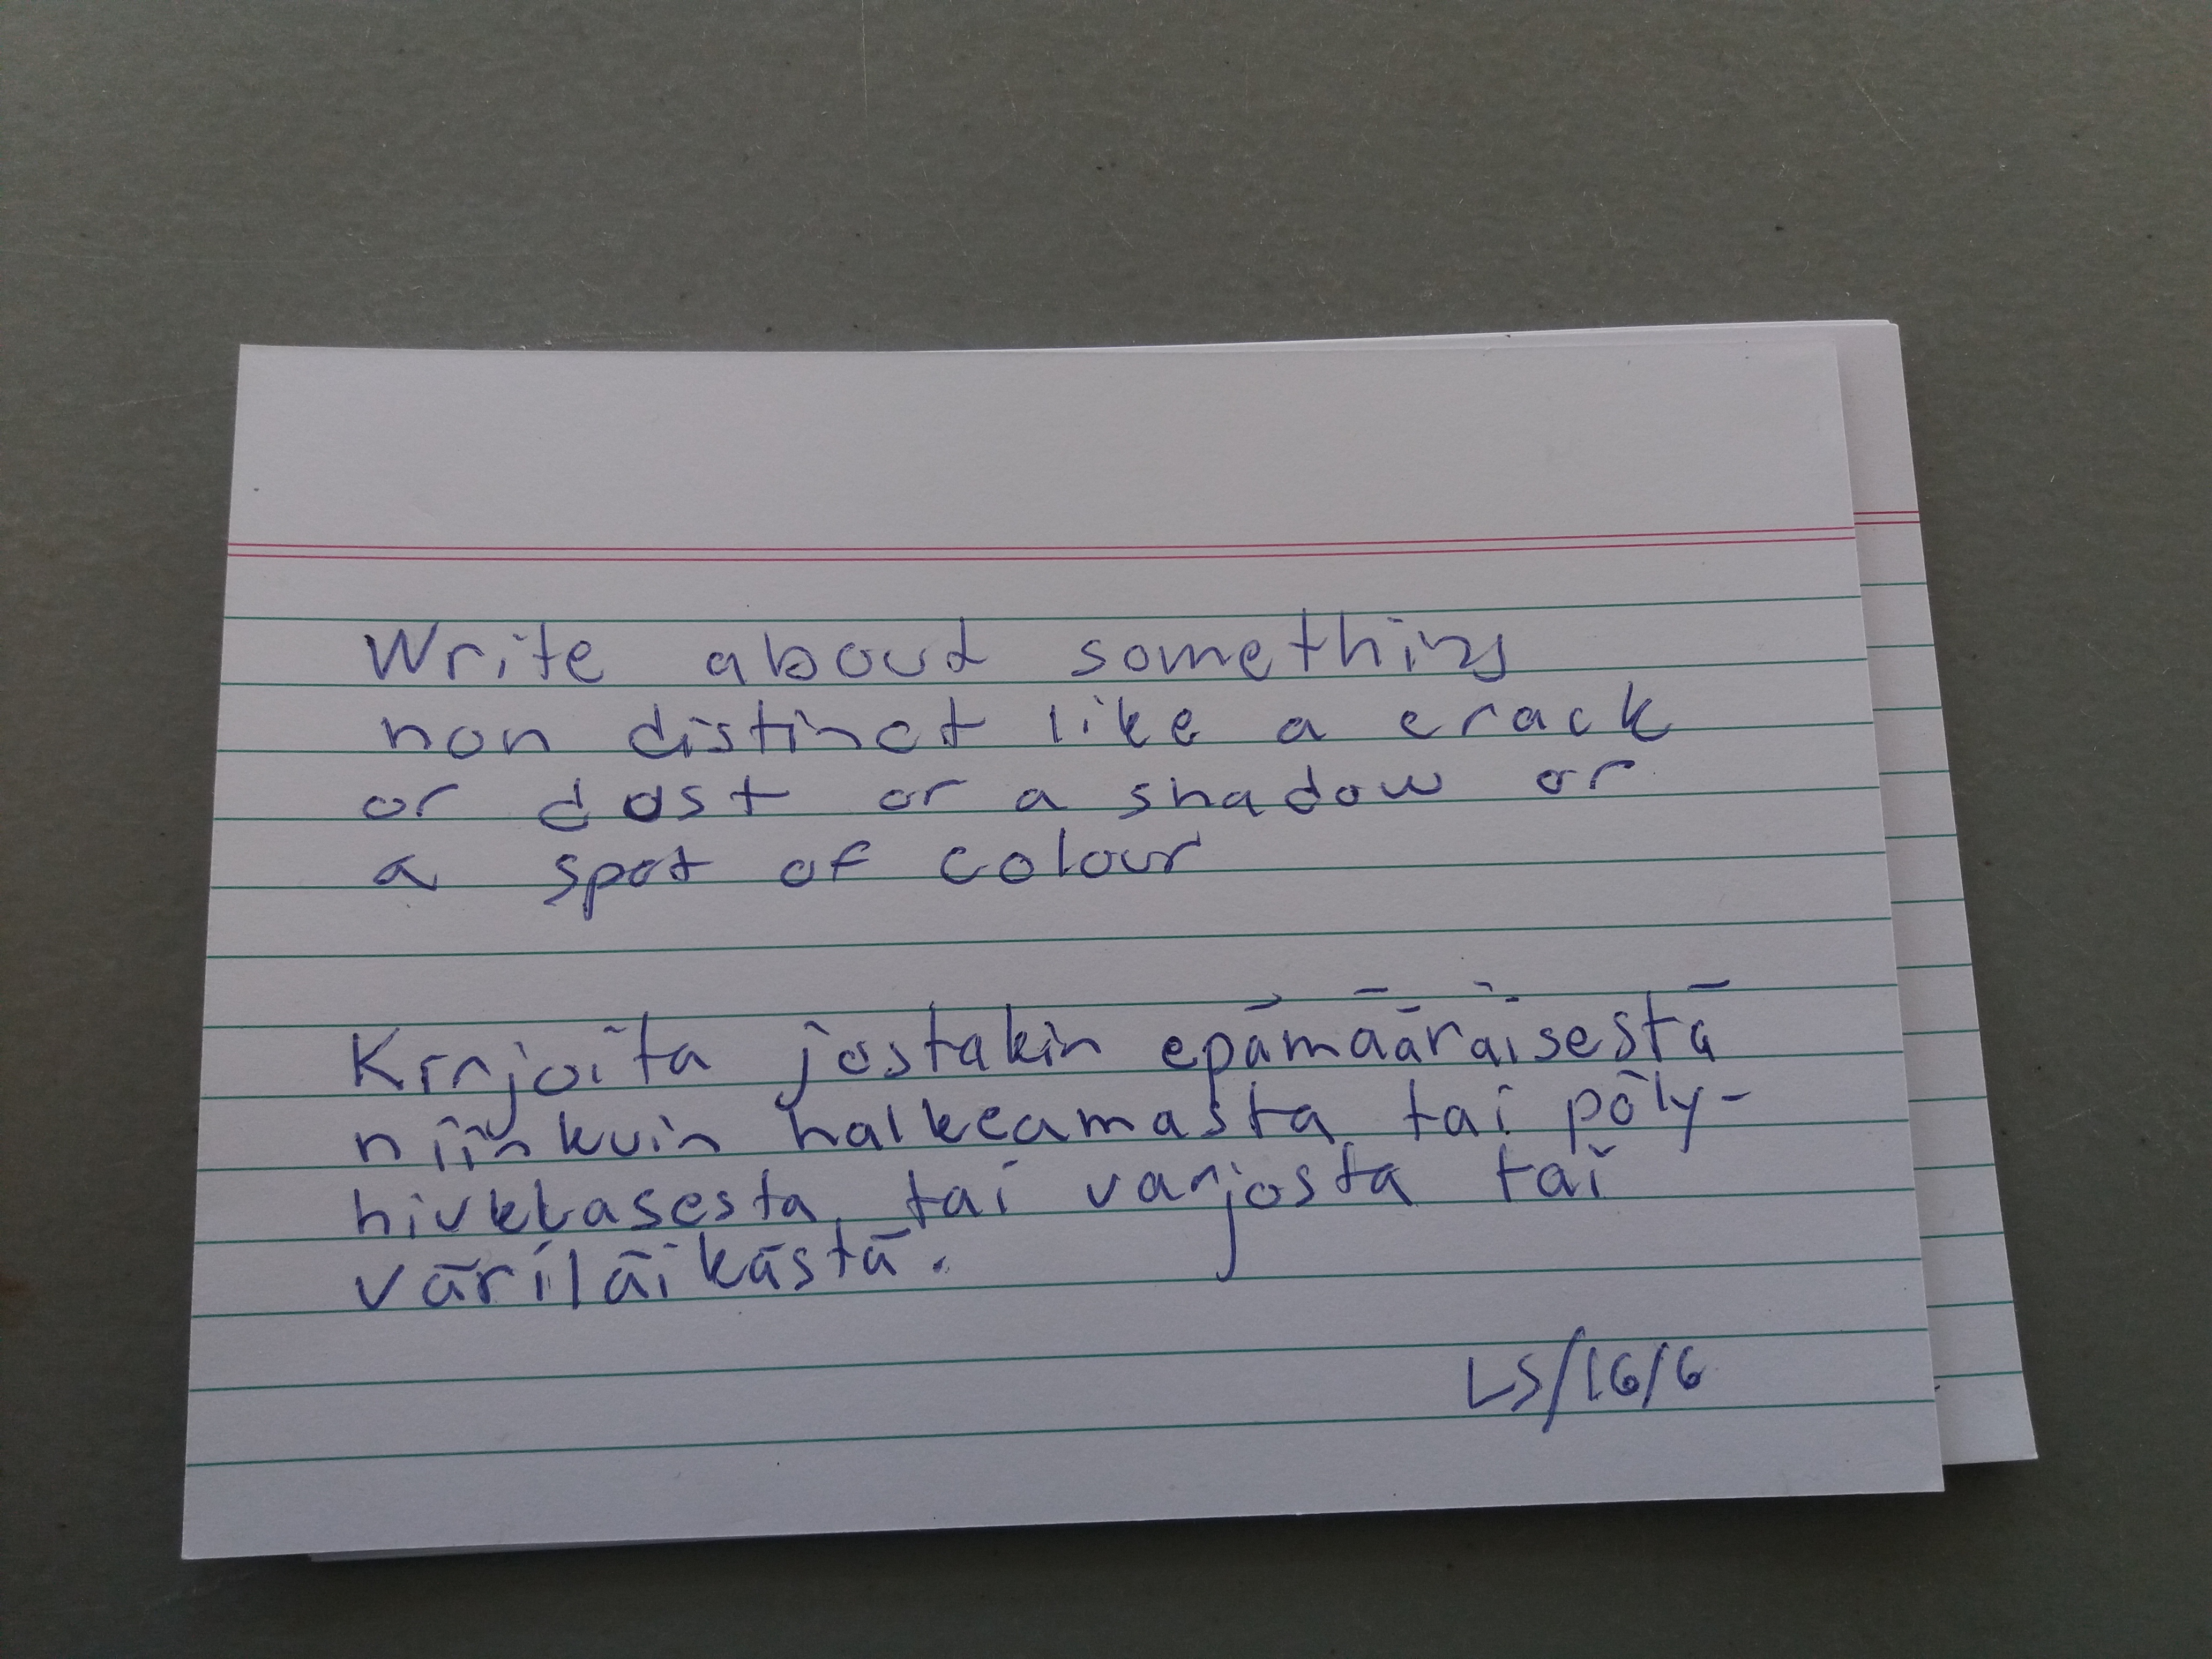 Write about something
non distinct like a crack
or dust or a shadow or
a spot of colour
Kirjoita jostakin epämääräisestä
niinkuin halkeamasta tai pöly-
hiukkasesta tai varjosta tai
väriläikästä.
LS/16/6